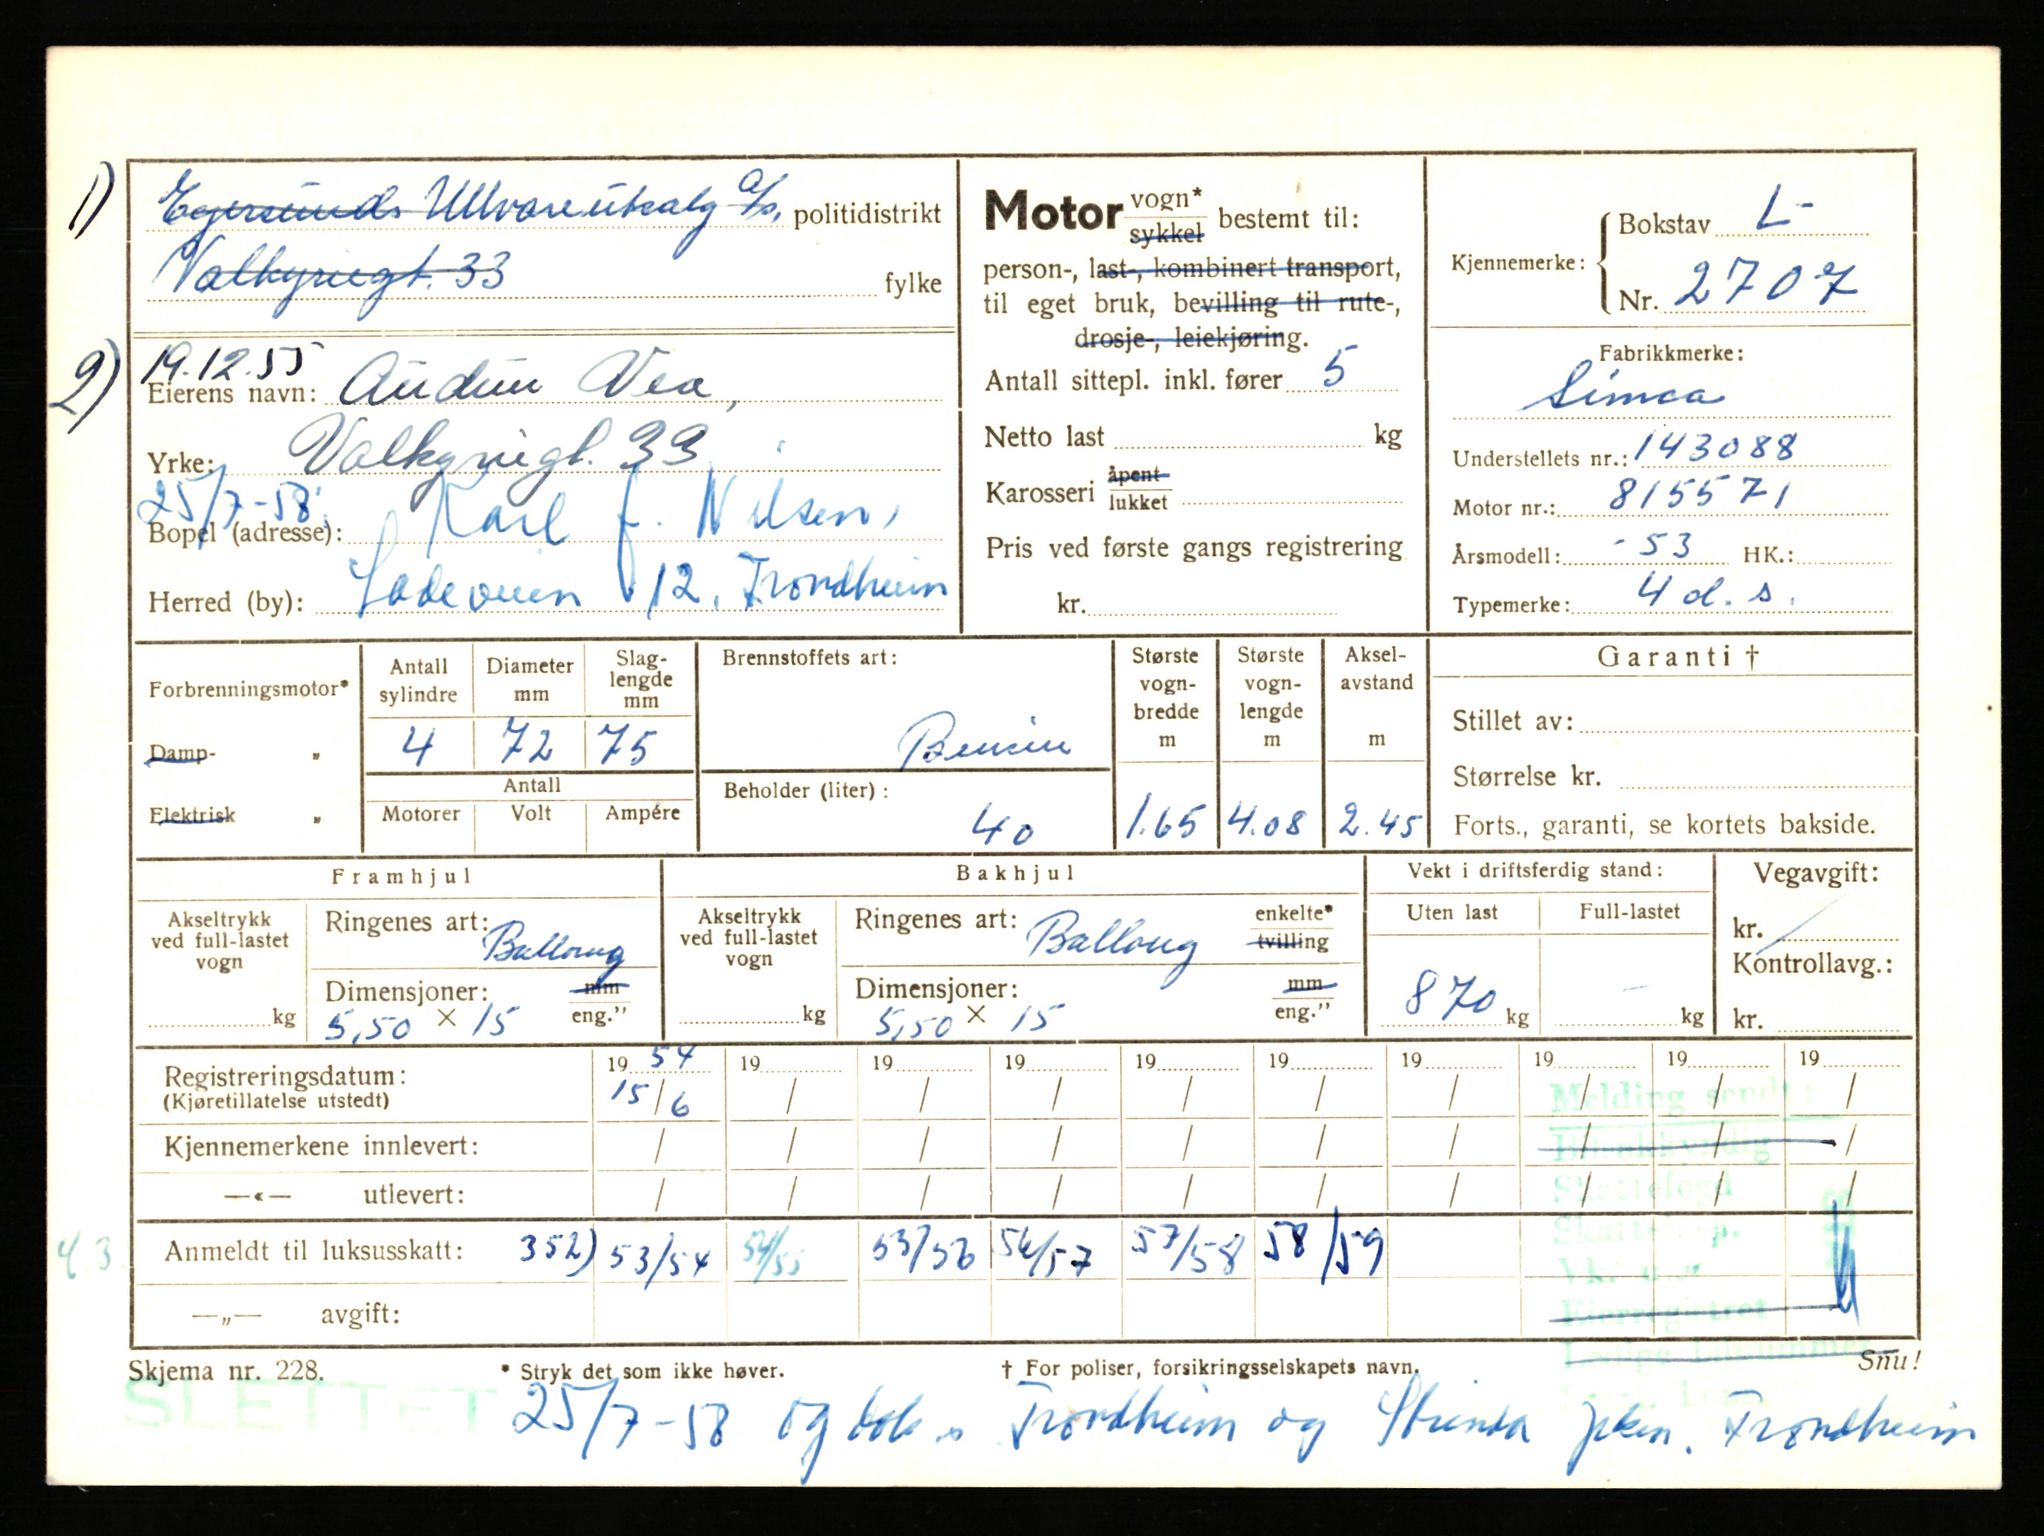 1) Egersunds Ullvareutsalg a/s. politidistrikt
Valkyriegt. 33 fylke
2) 19.12.55
Eierens navn: Audun Vea,
Yrke: Valkyriegt. 33
25/7-58.
Bopel (adresse): Karl J. Nilsen,
Herred (by): Ladeveien 12. Trondheim
Motor vogn* sykkel bestemt til:
person-, last-, kombinert transport,
til eget bruk, bevilling til rute-,
drosje-, leiekjøring.
Antall sittepl. inkl. fører 5
Netto last kg
Karosseri åpent lukket
Pris ved første gangs registrering
kr.
Kjennemerke: Bokstav L-
Nr. 2707
Fabrikkmerke:
Simca
Understellets nr.: 143088
Motor nr.: 815571
Årsmodell: -53 HK.:
Typemerke: 4 d. s.
Forbrenningsmotor*
Damp- „
Elektrisk „
Antall sylindre
Diameter mm
Slag-lengde mm
4 72 75
Antall
Motorer Volt Ampére
Brennstoffets art:
Bensin
Beholder (liter):
40
Største vogn-bredde m
1.65
Største vogn-lengde m
4.08
Aksel-avstand m
2.45
Garanti †
Stillet av:
Størrelse kr.
Forts., garanti, se kortets bakside.
Framhjul
Akseltrykk ved full-lastet vogn
kg
Ringenes art: Ballong
Dimensjoner: mm eng.”
5,50 × 15
Bakhjul
Akseltrykk ved full-lastet vogn
kg
Ringenes art: Ballong enkelte* tvilling
Dimensjoner: mm eng.”
5,50 × 15
Vekt i driftsferdig stand:
Uten last Full-lastet
870 kg – kg
Vegavgift:
kr.
Kontrollavg.:
kr.
19 54 19 19 19 19 19 19 19 19 19
Registreringsdatum: 15/6 / / / / / / / / /
(Kjøretillatelse utstedt)
Melding sendt:
Kjennemerkene innlevert: / / / / / / / / / /
—«— utlevert: / / / / / / / / / /
Skattefogd
43 Anmeldt til luksusskatt: 352) 53/54 54/55 53/56 56/57 57/58 58/59
Eierregistret
—„— avgift:
Skjema nr. 228. * Stryk det som ikke høver. † For poliser, forsikringsselskapets navn. Snu!
SLETTET
25/7-58 og Trondheim og Strinda Trondheim